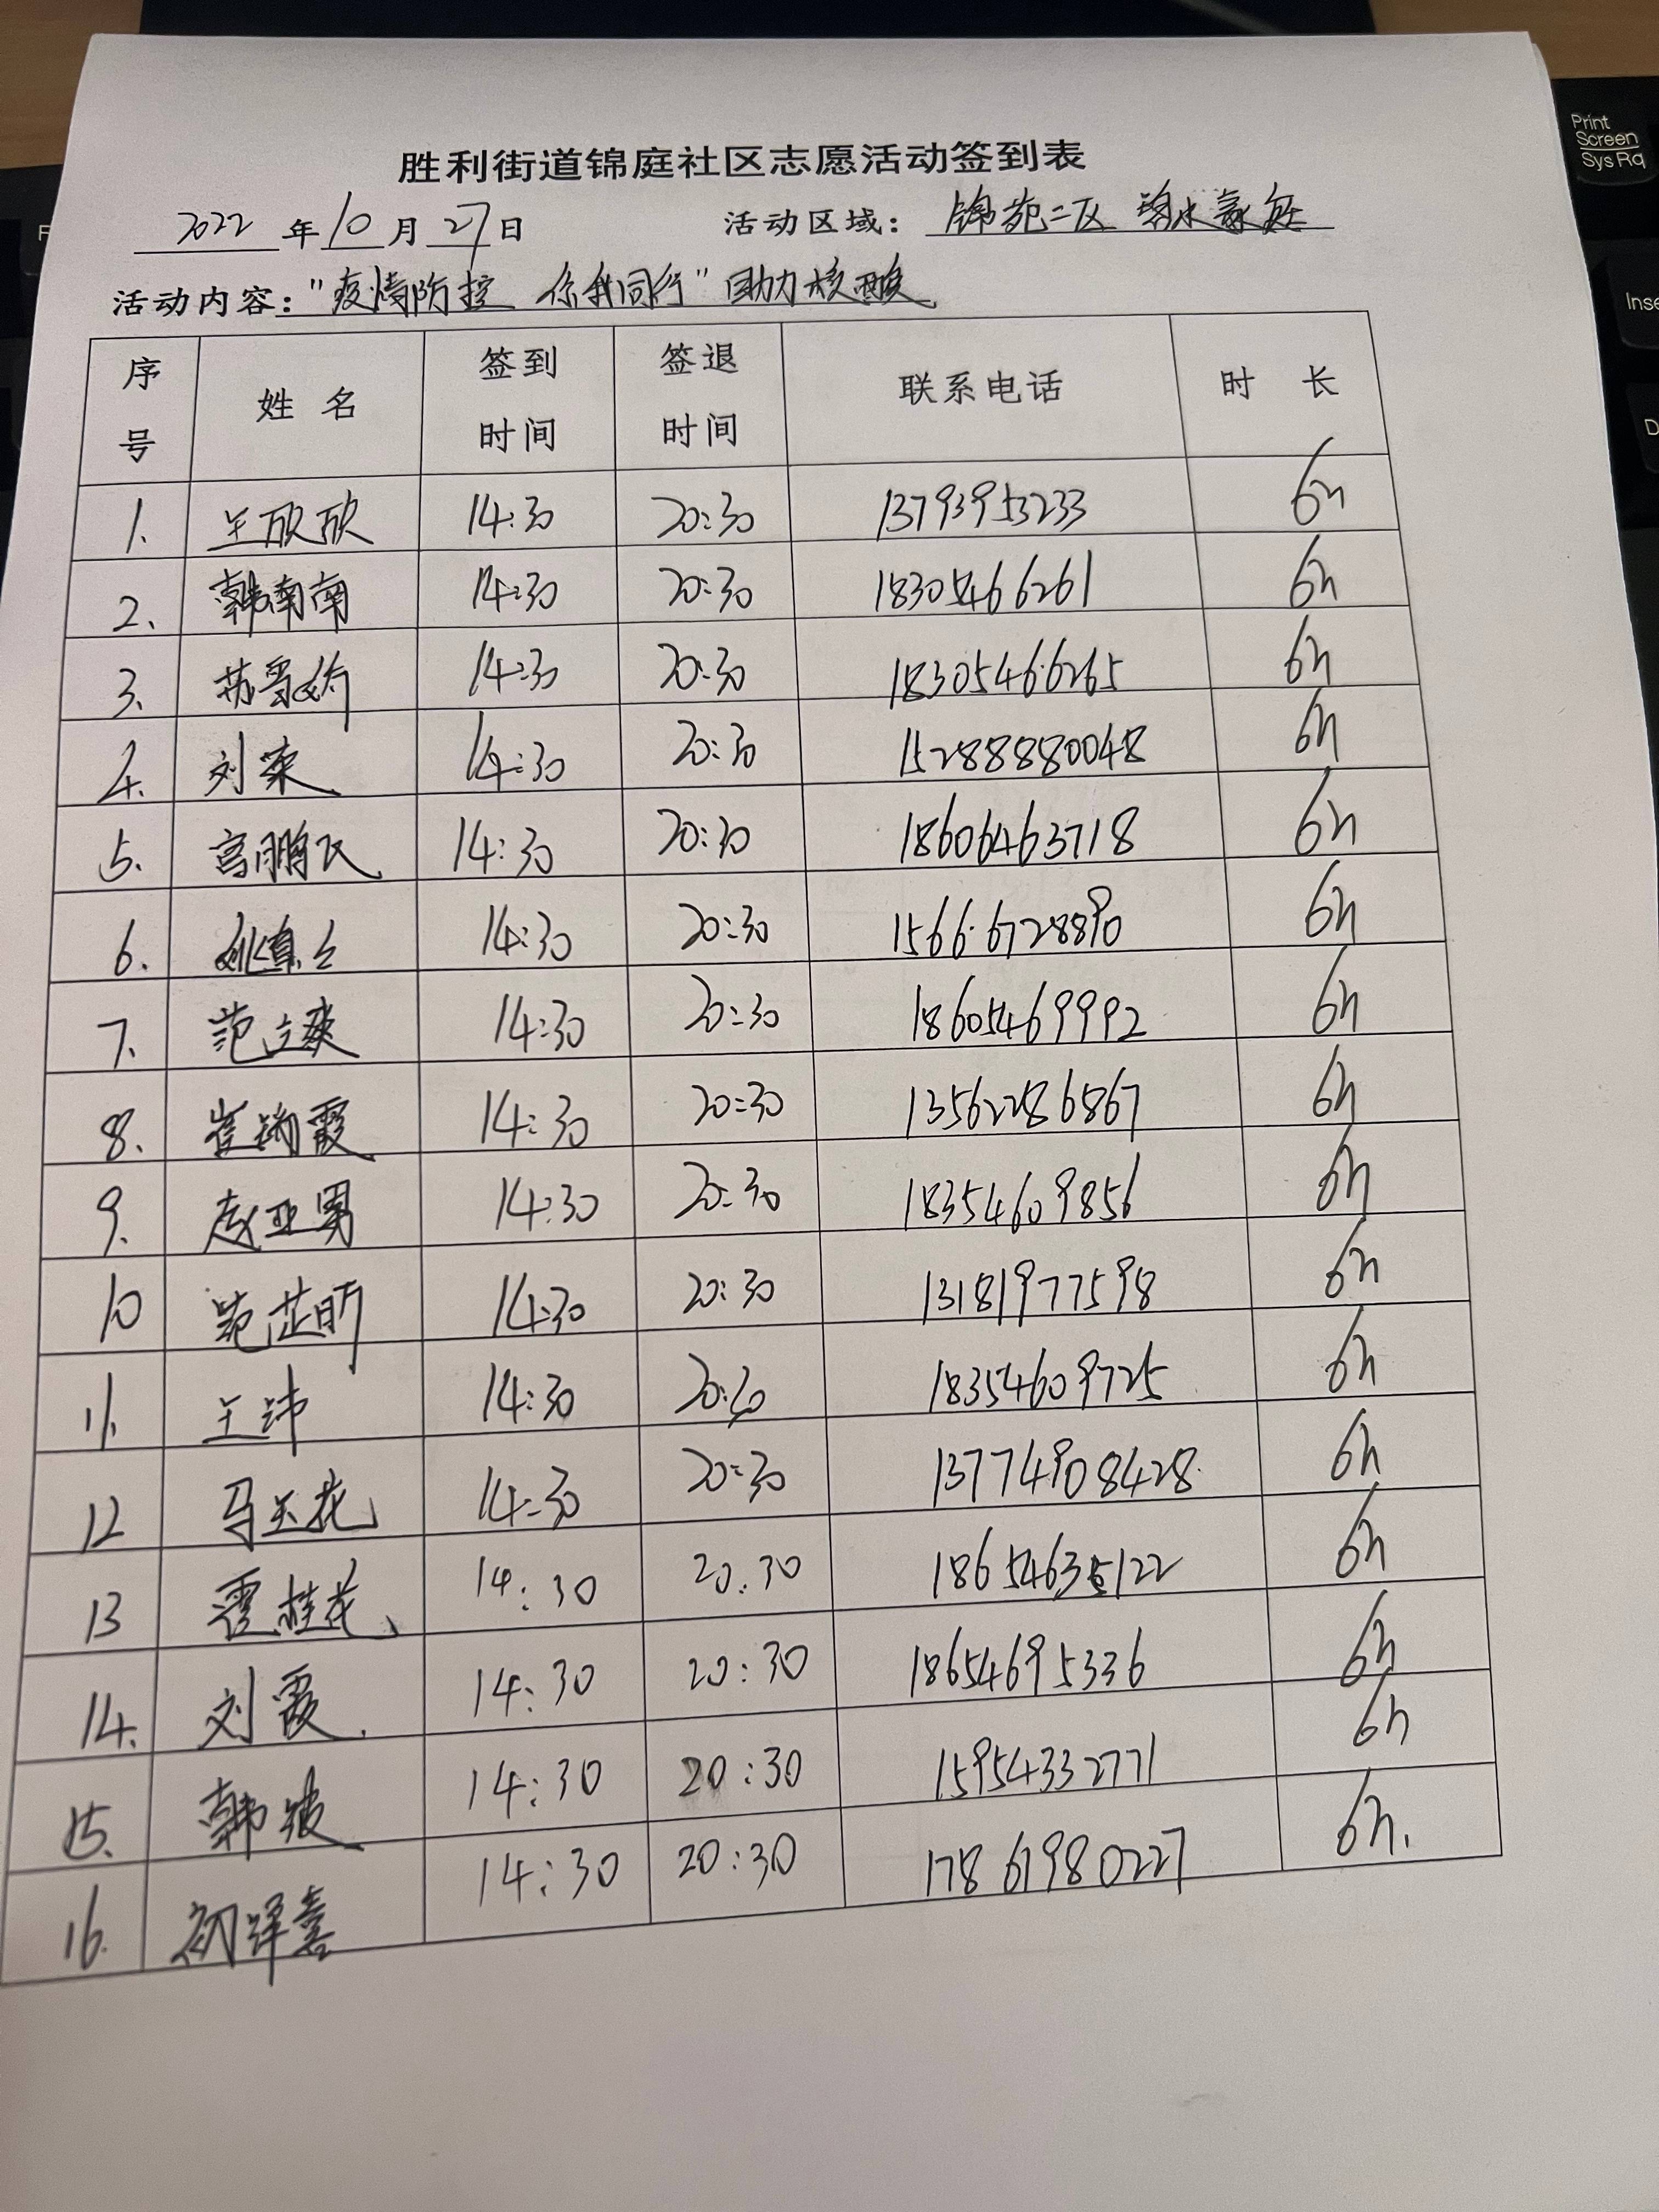 胜利街道锦庭社区志愿活动签到表
2022 年 10 月 27 日 活动区域： 锦苑二区
活动内容："疫情防控 你我同行"助力核酸
序号 姓名 签到时间 签退时间 联系电话 时长
1. 王欣欣 14:30 20:30 13793953233 6h
2. 韩南南 14:30 20:30 18305466261 6h
3. 苏雪娇 14:30 20:30 18305466265 6h
4. 刘荣 14:30 20:30 15288880048 6h
5. 宫鹏飞 14:30 20:30 18606463718 6h
6. 14:30 20:30 15666728890 6h
7. 范立爽 14:30 20:30 18605469992 6h
8. 崔绮霞 14:30 20:30 13562286867 6h
9. 赵亚男 14:30 20:30 18354609856 6h
10 范芷昕 14:30 20:30 13181977598 6h
11. 王沛 14:30 20:30 18354609725 6h
12 马玉花 14:30 20:30 13774908428 6h
13 霍桂花 14:30 20:30 18654635122 6h
14. 刘霞 14:30 20:30 18654695336 6h
15. 韩波 14:30 20:30 15954332771 6h
16. 初泽喜 14:30 20:30 17861980227 6h.
Print
Screen
Sys Rq